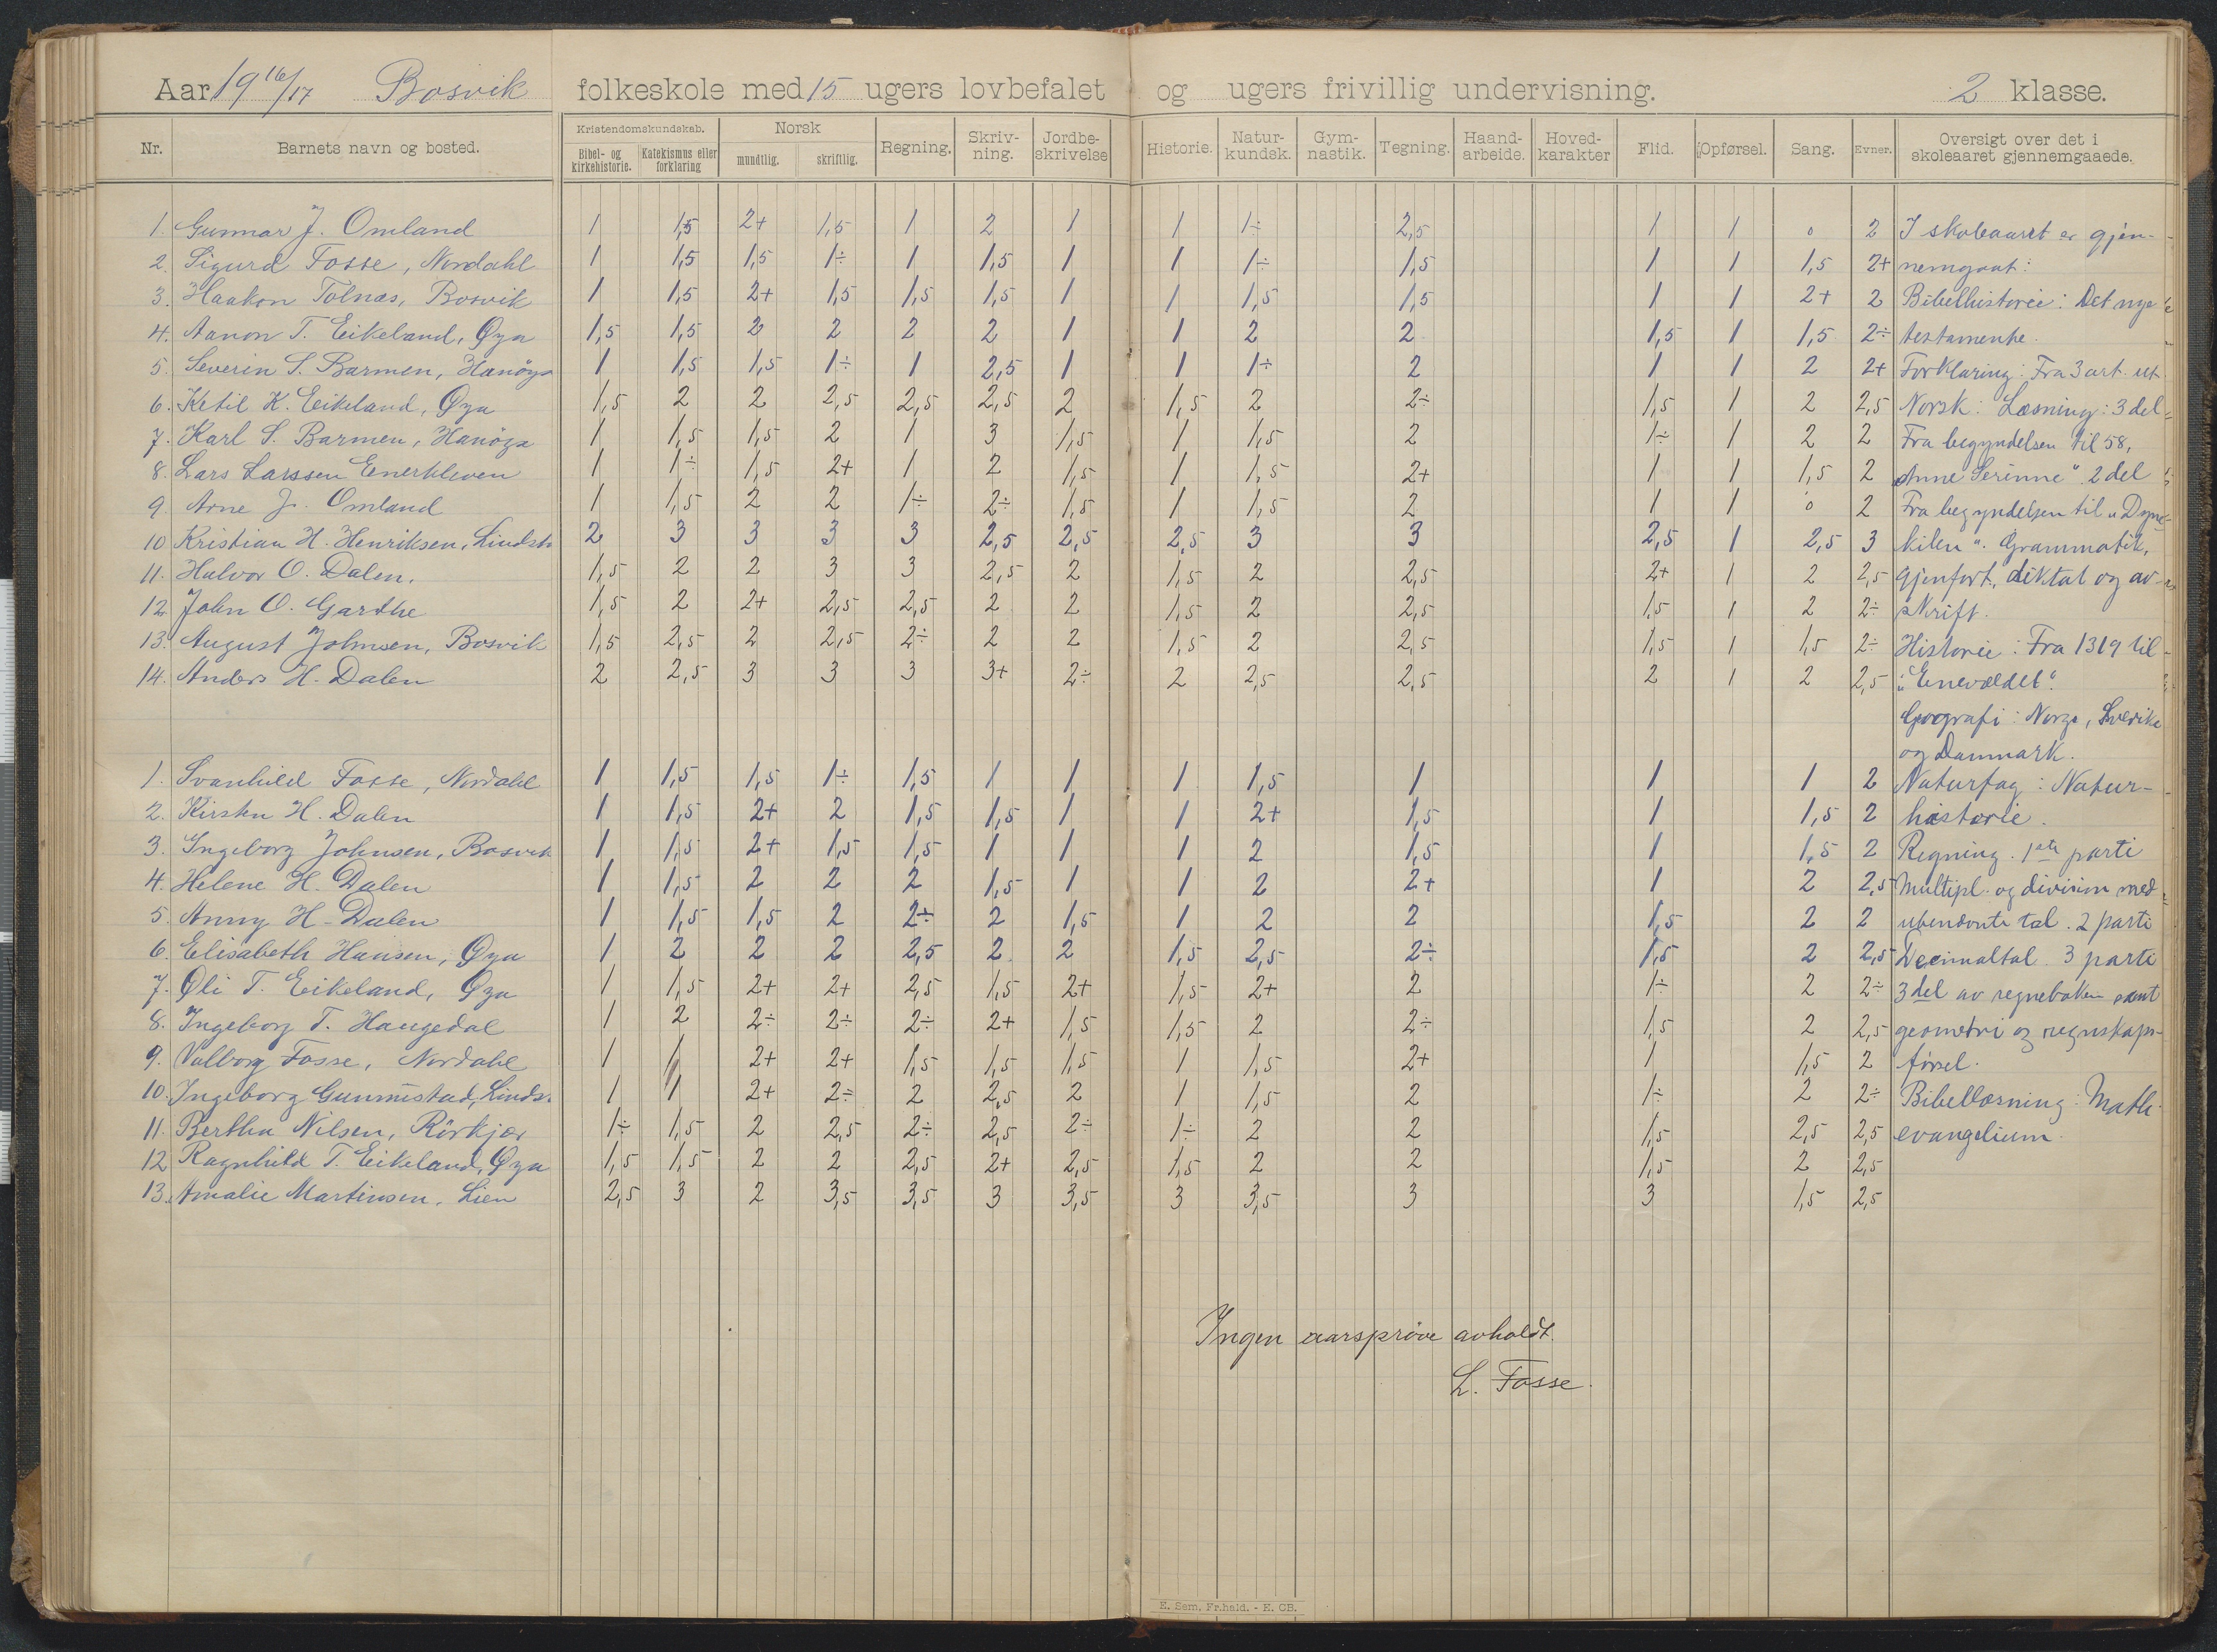 Aar 19 16/17 Bosvik folkeskole med 15 ugers lovbefalet og ugers frivillig undervisning. 2 klasse.
Nr. Barnets navn og bosted. Kristendomskundskab. Bibel- og kirkehistorie. Katekismus eller forklaring Norsk mundtlig. skriftlig. Regning. Skriv-ning. Jordbe-skrivelse Historie. Natur-kundsk. Gym-nastik. Tegning. Haand-arbeide. Hoved-karakter Flid. Opførsel. Sang. Evner. Oversigt over det i skoleaaret gjennemgaaede.
1. Gunnar J. Omland 1 1,5 2+ 1,5 1 2 1 1 1÷ 2,5 1 1 0 2 I skoleaaret er gjen-
2. Sigurd Fosse, Nordahl 1 1,5 1,5 1÷ 1 1,5 1 1 1÷ 1,5 1 1 1,5 2+ nemgaat:
3. Haakon Tolnæs, Bosvik 1 1,5 2+ 1,5 1,5 1,5 1 1 1,5 1,5 1 1 2+ 2 Bibelhistorie: Det nye
4. Aanon T. Eikeland, Øya 1,5 1,5 2 2 2 2 1 1 2 2 1,5 1 1,5 2÷ testamente.
5. Severin S. Barmen, Hanøya 1 1,5 1,5 1÷ 1 2,5 1 1 1÷ 2 1 1 2 2+ Forklaring: Fra 3 art. ut
6. Ketil K. Eikeland, Øya 1,5 2 2 2,5 2,5 2,5 2 1,5 2 2÷ 1,5 1 2 2,5 Norsk: Læsning: 3 del
7. Karl S. Barmen, Hanøya 1 1,5 1,5 2 1 3 1,5 1 1,5 2 1÷ 1 2 2 Fra begyndelsen til 58,
8. Lars Larssen Enerkleven 1 1÷ 1,5 2+ 1 2 1,5 1 1,5 2+ 1 1 1,5 2 „Anne Serinne" 2 del
9. Arne J. Omland 1 1,5 2 2 1÷ 2÷ 1,5 1 1,5 2 1 1 0 2 Fra begyndelsen til „Dyne-
10 Kristian H. Henriksen, Lindst. 2 3 3 3 3 2,5 2,5 2,5 3 3 2,5 1 2,5 3 kilen". Grammatik,
11. Halvor O. Dalen. 1,5 2 2 3 3 2,5 2 1,5 2 2,5 2+ 1 2 2,5 gjenfort., diktat og av-
12 John O. Garthe 1,5 2 2+ 2,5 2,5 2 2 1,5 2 2,5 1,5 1 2 2÷ skrift.
13. August Johnsen, Bosvik 1,5 2,5 2 2,5 2÷ 2 2 1,5 2 2,5 1,5 1 1,5 2÷ Historie: Fra 1319 til
14. Anders H. Dalen 2 2,5 3 3 3 3+ 2÷ 2 2,5 2,5 2 1 2 2,5 „Enevældet".
Geografi: Norge, Sverike
og Danmark.
1. Svanhild Fosse, Nordahl 1 1,5 1,5 1÷ 1,5 1 1 1 1,5 1 1 1 2 Naturfag: Natur-
2. Kirsten H. Dalen 1 1,5 2+ 2 1,5 1,5 1 1 2+ 1,5 1 1,5 2 historie.
3. Ingeborg Johnsen, Bosvik 1 1,5 2+ 1,5 1,5 1 1 1 2 1,5 1 1,5 2 Regning. 1ste parti
4. Helene H. Dalen 1 1,5 2 2 2 1,5 1 1 2 2+ 1 2 2,5 Multipl. og division med
5. Anny H. Dalen 1 1,5 1,5 2 2÷ 2 1,5 1 2 2 1,5 2 2 ubenævnte tal. 2 parti
6. Elisabeth Hansen, Øya 1 2 2 2 2,5 2 2 1,5 2,5 2÷ 1,5 2 2,5 Decimaltal 3 parti
7. Oli T. Eikeland, Øya 1 1,5 2+ 2+ 2,5 1,5 2+ 1,5 2+ 2 1÷ 2 2÷ 3 del av regneboken samt
8. Ingeborg T. Haugedal 1 2 2÷ 2÷ 2÷ 2+ 1,5 1,5 2 2÷ 1,5 2 2,5 geometri og regnskaps-
9. Valborg Fosse, Nordahl 1 1 2+ 2+ 1,5 1,5 1,5 1 1,5 2+ 1 1,5 2 førsel.
10. Ingeborg Gunmistad, Linds. 1 1 2+ 2÷ 2 2,5 2 1 1,5 2 1÷ 2 2÷ Bibellæsning: Math.
11. Bertha Nilsen, Rörkjær 1÷ 1,5 2 2,5 2÷ 2,5 2÷ 1÷ 2 2 1,5 2,5 2,5 evangelium.
12 Ragnhild T. Eikeland, Øya 1,5 1,5 2 2 2,5 2+ 2,5 1,5 2 2 1,5 2 2,5
13. Amalie Martinsen, Lien 2,5 3 2 3,5 3,5 3 3,5 3 3,5 3 3 1,5 2,5
Ingen aarsprøve avholdt.
L. Fosse.
E. Sem, Fr.hald. - E. CB.